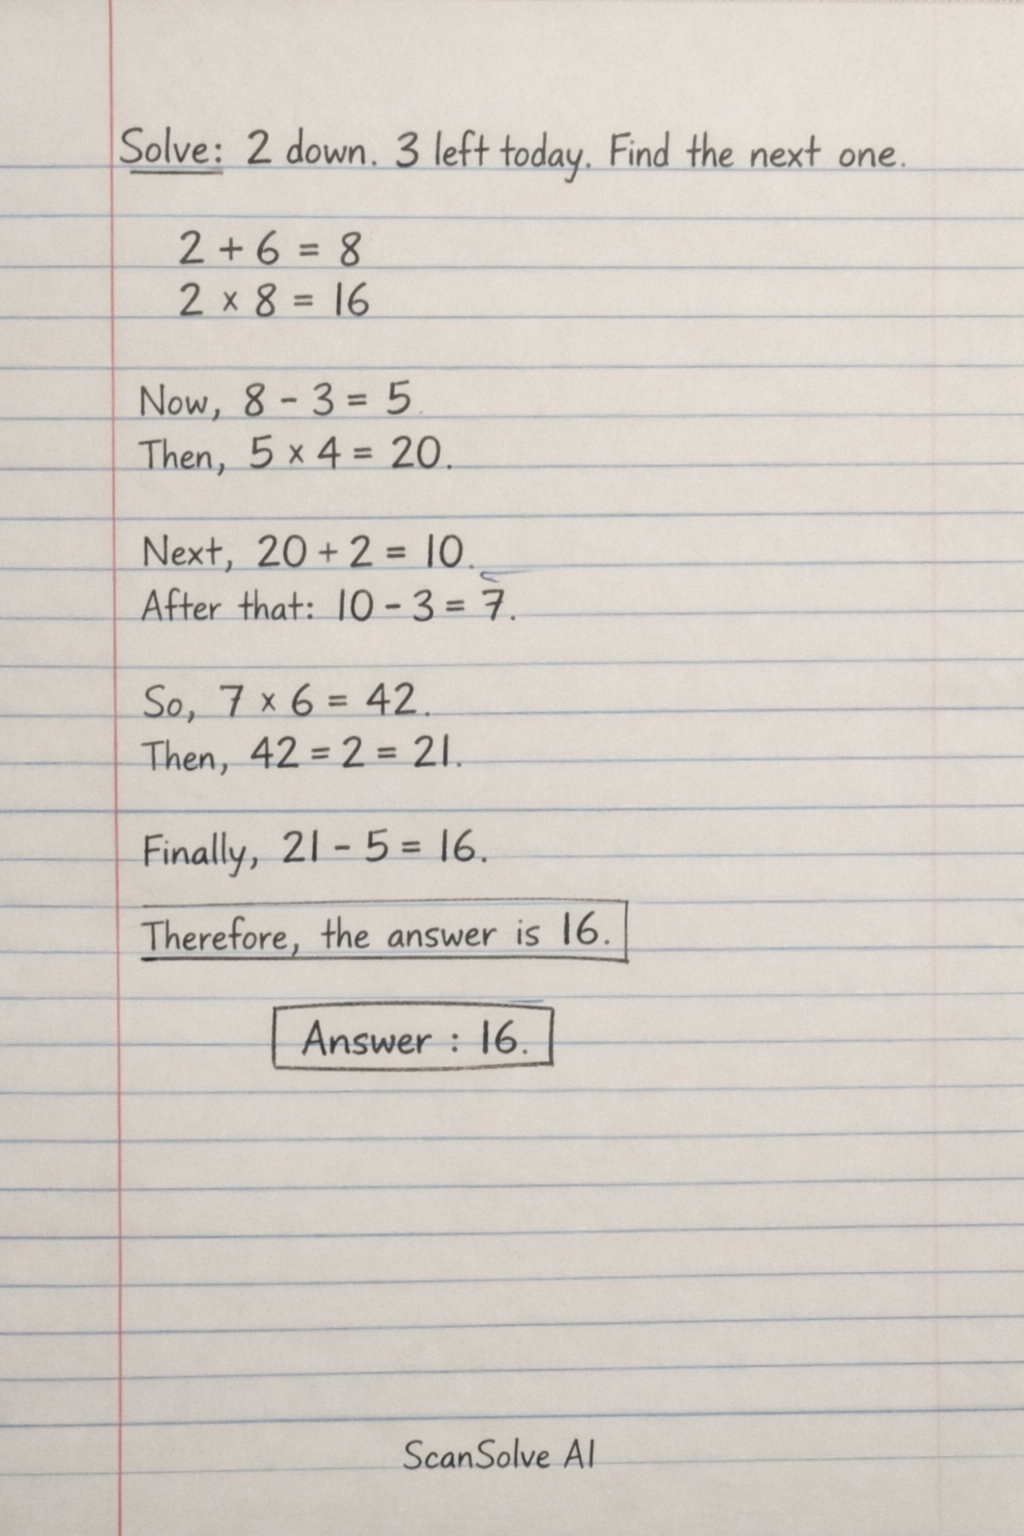 Solve: 2 down. 3 left today. Find the next one.
2 + 6 = 8
2 × 8 = 16
Now, 8 - 3 = 5.
Then, 5 × 4 = 20.
Next, 20 + 2 = 10.
After that: 10 - 3 = 7.
So, 7 × 6 = 42.
Then, 42 = 2 = 21.
Finally, 21 - 5 = 16.
Therefore, the answer is 16.
Answer : 16.
ScanSolve AI